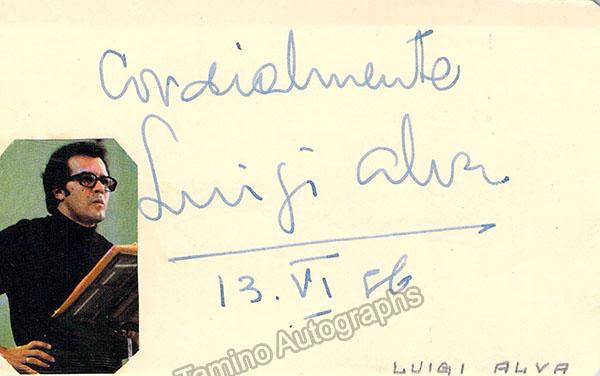 Cordialmente
Luigi Alva
13. VI 56
Tamino Autographs
LUIGI ALVA